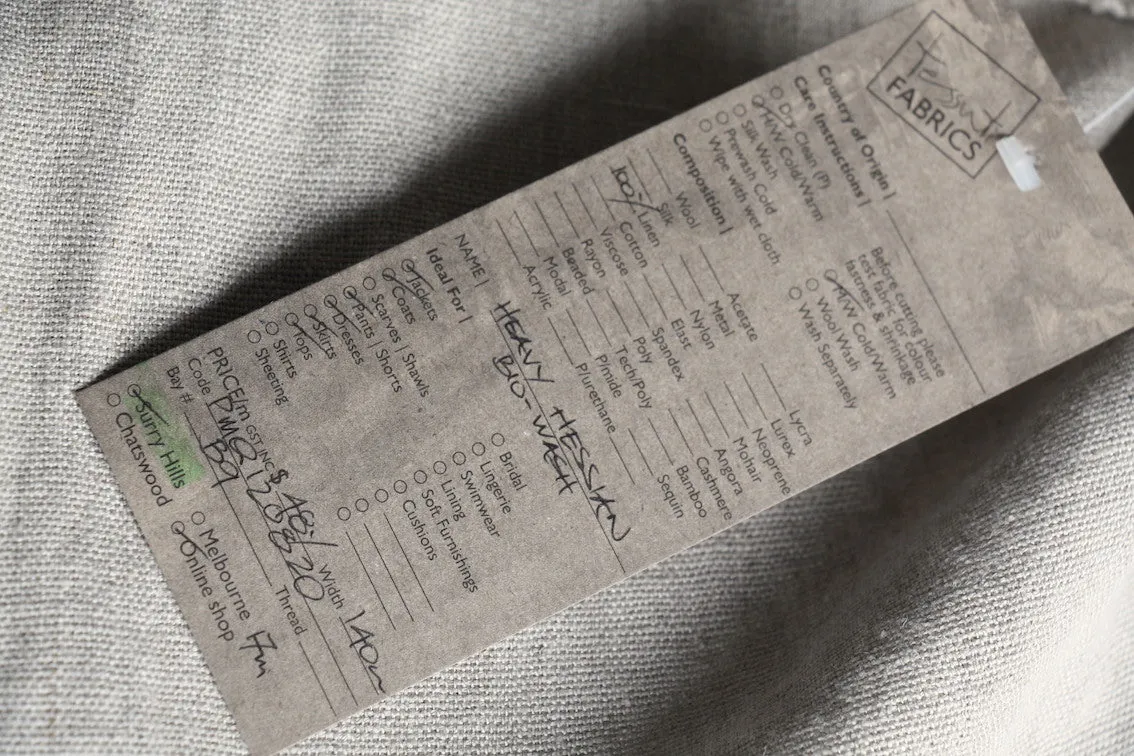 Tessuti
FABRICS
Country of Origin |
Care Instructions |
Dry Clean (P)
H/W Cold/Warm
Silk Wash
Prewash Cold
Wipe with wet cloth
Before cutting please
test fabric for colour
fastness & shrinkage
H/W Cold/Warm
Wool Wash
Wash Separately
Composition |
Wool
Silk
100% Linen
Cotton
Viscose
Rayon
Beaded
Modal
Acrylic
Acetate
Metal
Nylon
Elast
Spandex
Poly
Tech/Poly
P/mide
P/urethane
Lycra
Lurex
Neoprene
Mohair
Angora
Cashmere
Bamboo
Sequin
NAME | HEAVY HESSIAN
BIO-WASH
Ideal For |
Jackets
Coats
Scarves | Shawls
Pants | Shorts
Dresses
Skirts
Tops
Shirts
Sheeting
Bridal
Lingerie
Swimwear
Lining
Soft Furnishings
Cushions
PRICE/m GST INC $ 48/ Width 140cm
Code
Bay # B9 Thread
Surry Hills
Chatswood
Melbourne 7m
Online shop